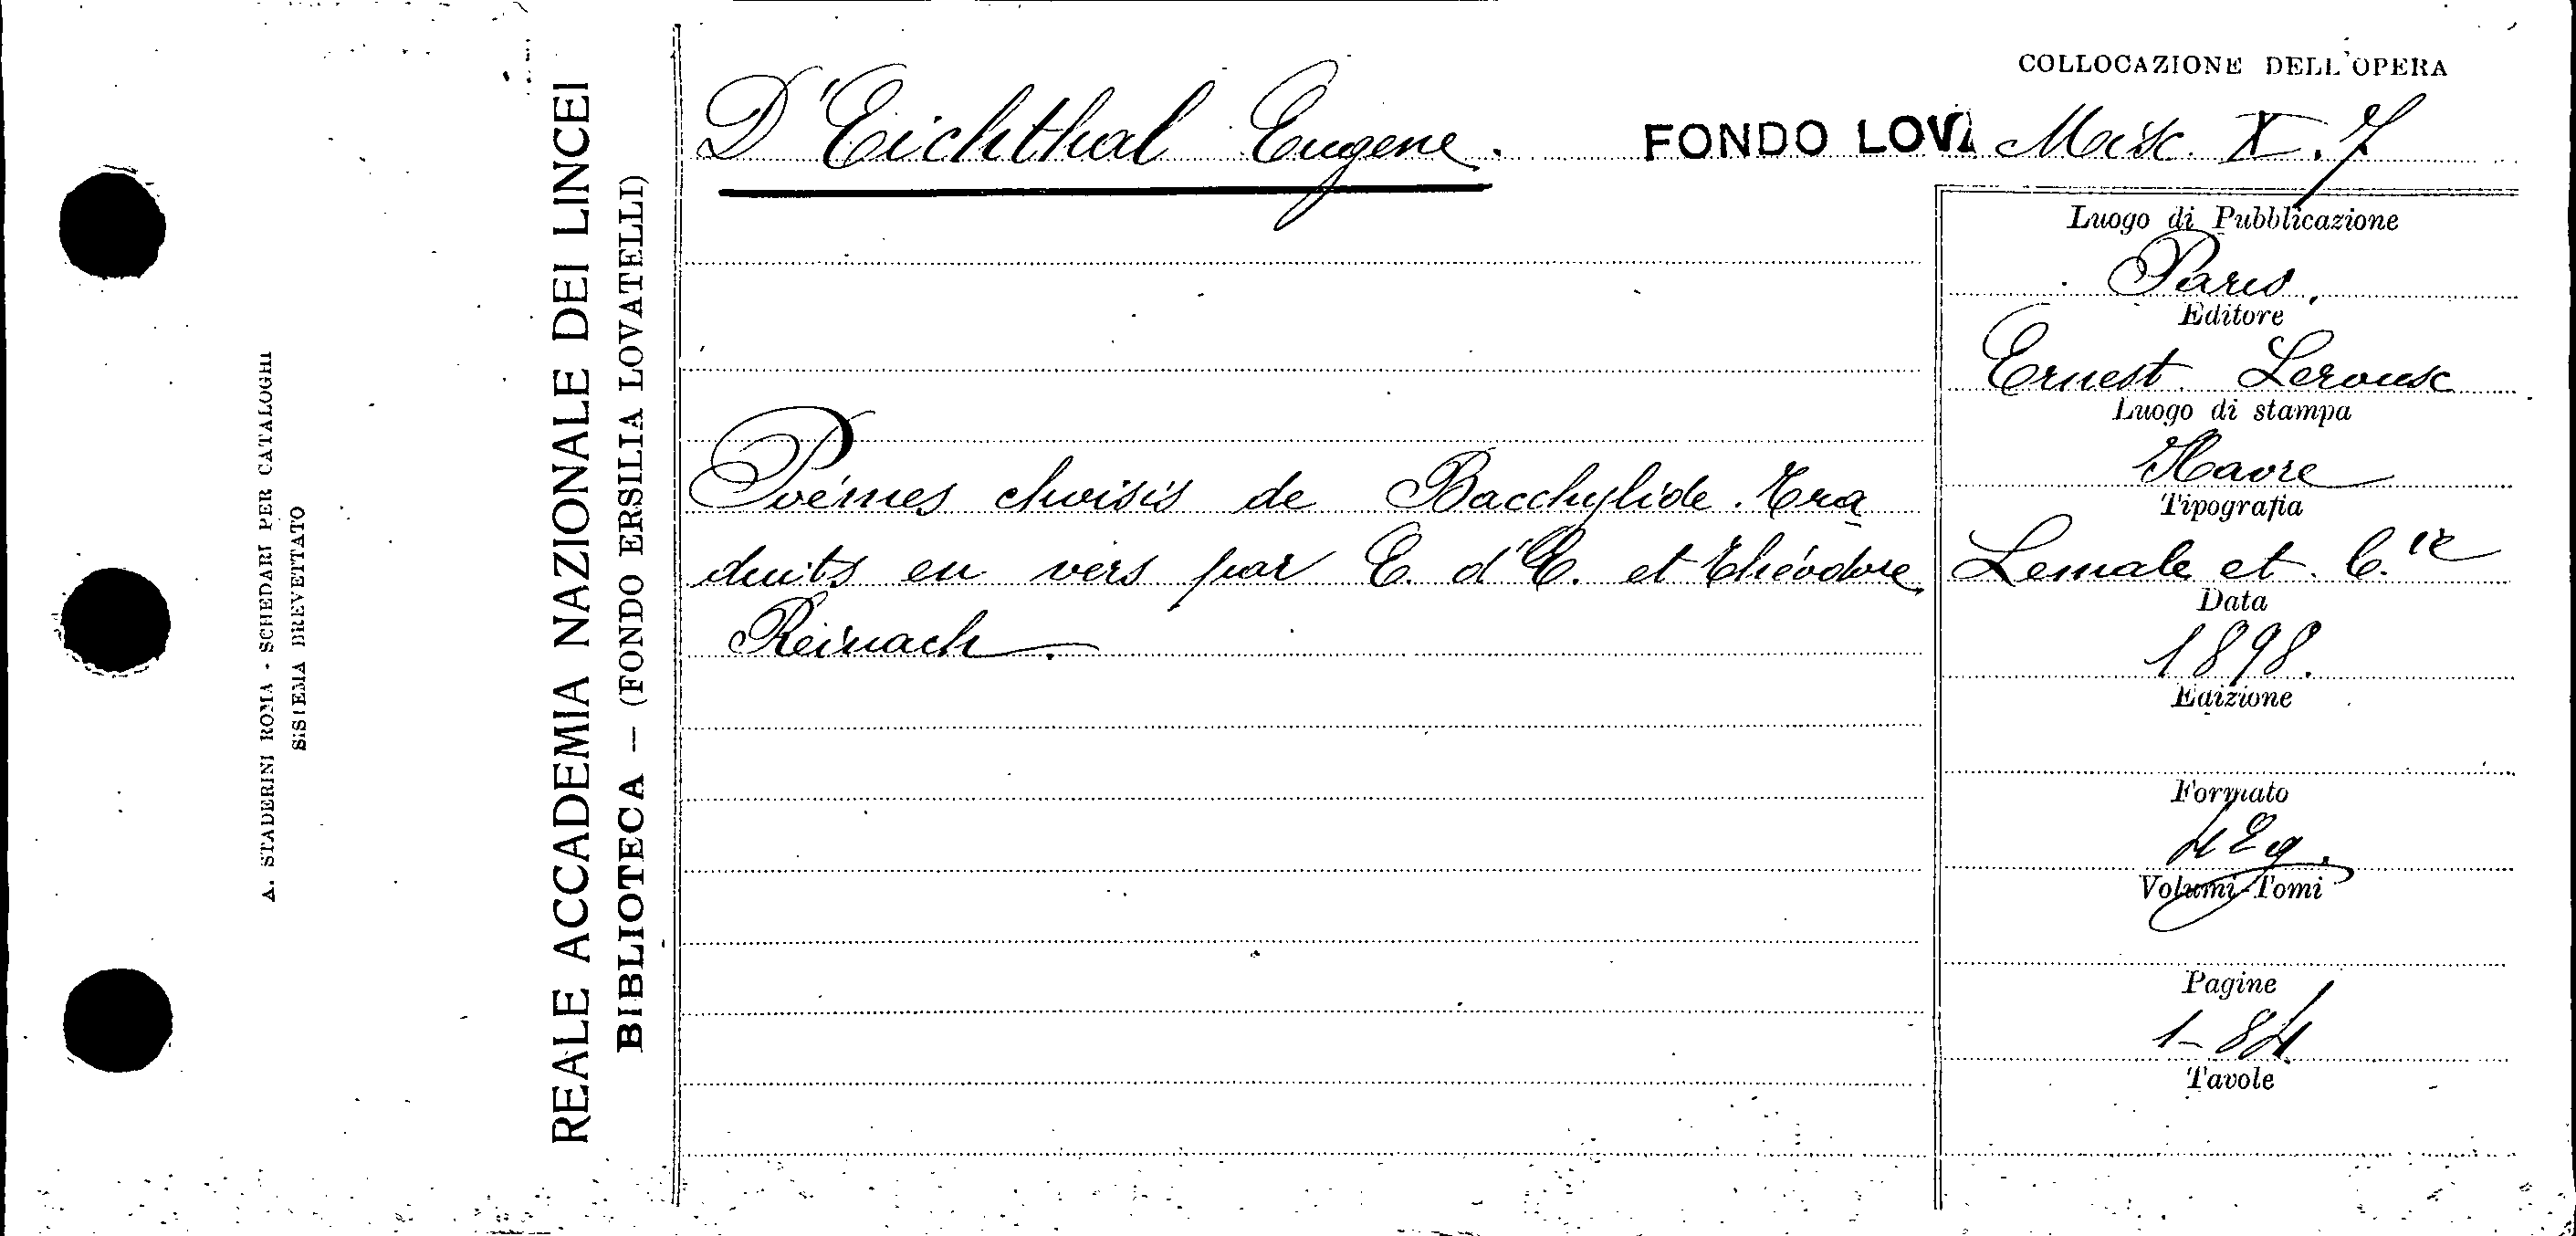 COLLOCAZIONE DELL'OPERA
D'Eichthal Eugene.
FONDO LOVA Misc. X. 7
Luogo di Pubblicazione
Paris.
Editore
Ernest Leroux
Luogo di stampa
Havre
Tipografia
Lemale et C.ie
Data
1898.
Edizione
Formato
Volumi-Tomi
Pagine
1-84
Tavole
Poémes choisis de Bacchylide. Tra
duits en vers par E. d'E. et Théodore
Reinach.
REALE ACCADEMIA NAZIONALE DEI LINCEI
BIBLIOTECA — (FONDO ERSILIA LOVATELLI)
A. STADERINI ROMA - SCHEDARI PER CATALOGHI
SISTEMA BREVETTATO